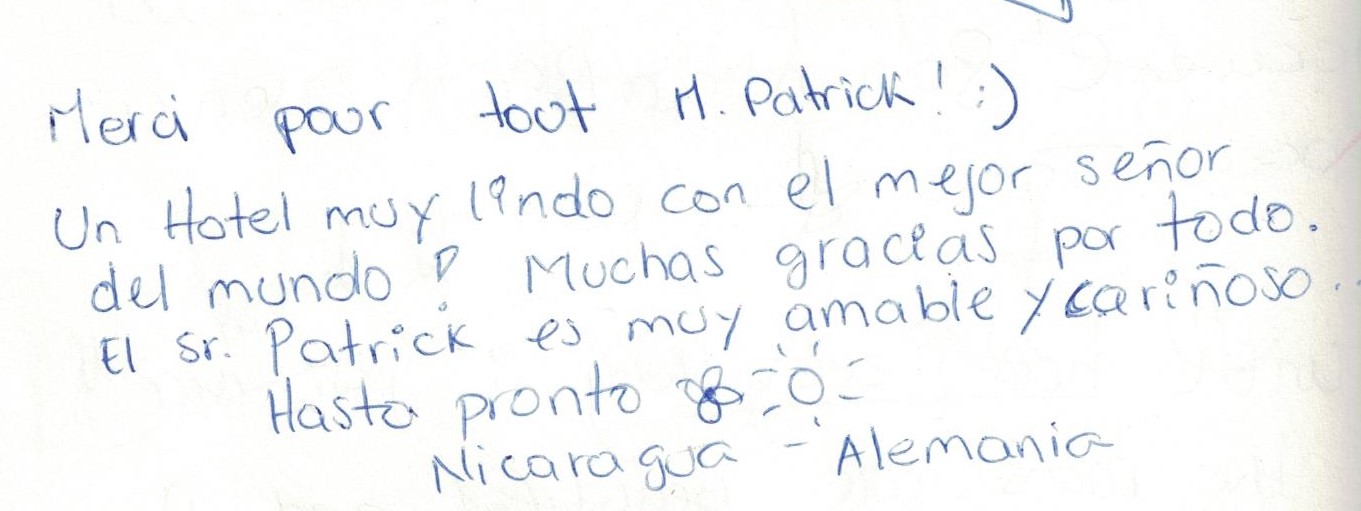 Merci pour tout M. Patrick! :)
Un Hotel muy lindo con el mejor señor
del mundo! Muchas gracias por todo.
El sr. Patrick es muy amable y cariñoso..
Hasta pronto
Nicaragua - Alemania